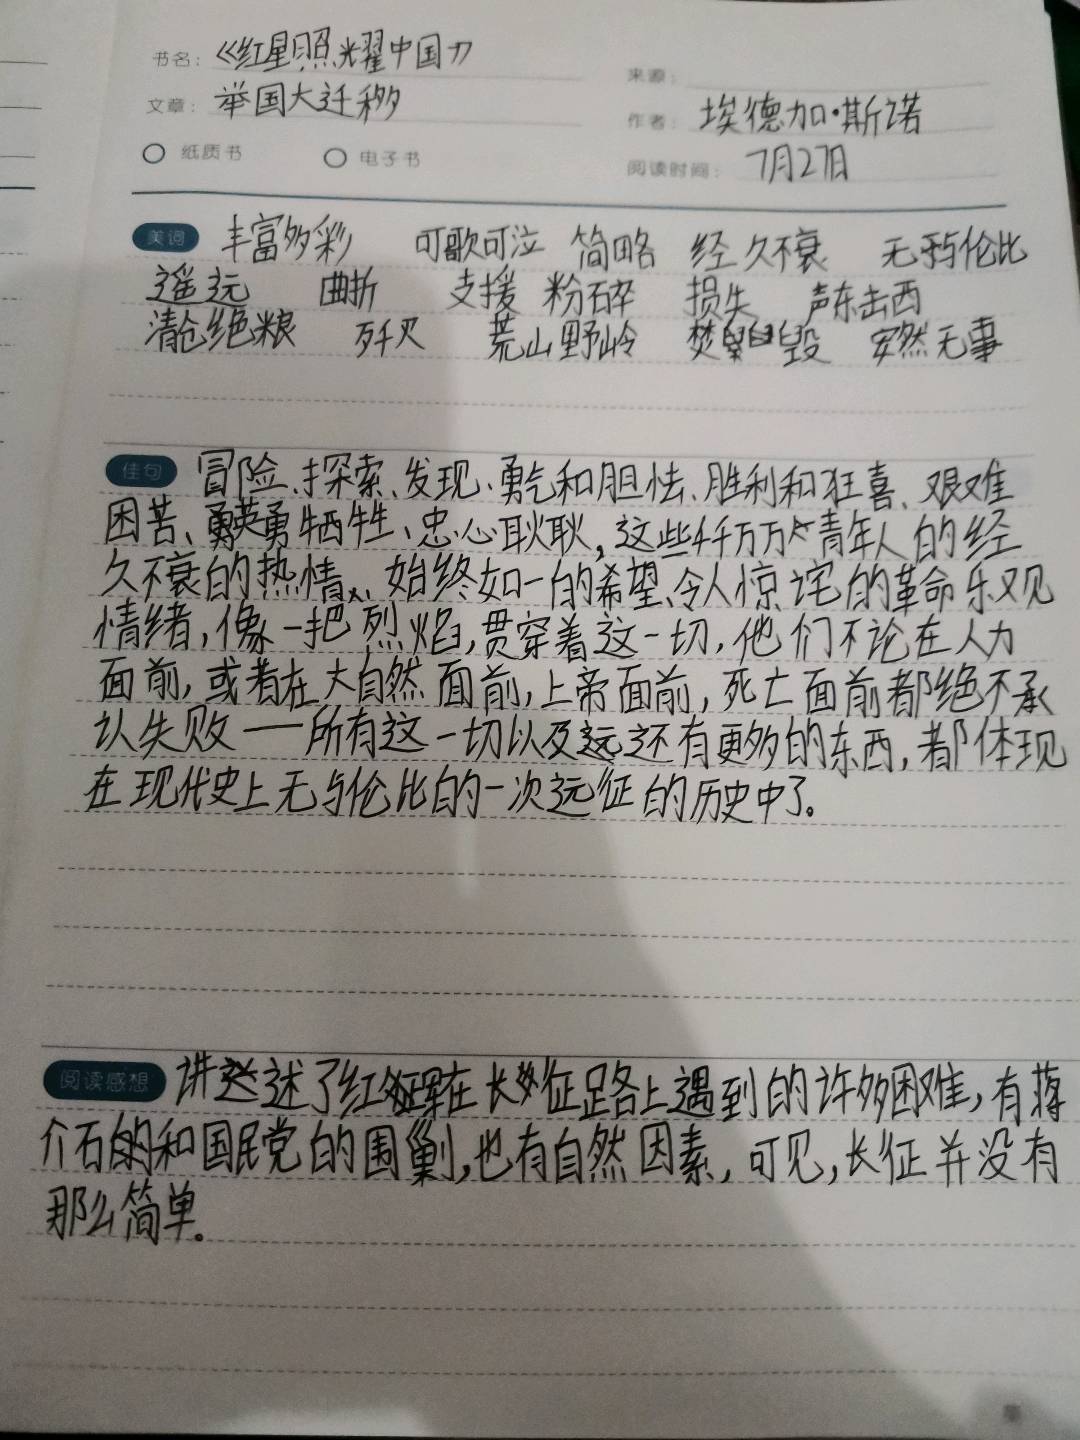 书名：《红星照耀中国》
来源：
文章：举国大迁移
作者：埃德加·斯诺
纸质书 电子书
阅读时间：7月27日
美词 丰富多彩 可歌可泣 简略 经久不衰 无与伦比
遥远 曲折 支援 粉碎 损失 声东击西
清仓绝粮 歼灭 荒山野岭 焚毁 安然无事
佳句 冒险、探索、发现、勇气和胆怯、胜利和狂喜、艰难
困苦、英勇牺牲、忠心耿耿，这些千千万万青年人的经
久不衰的热情、始终如一的希望、令人惊诧的革命乐观
情绪，像一把烈焰，贯穿着这一切，他们不论在人力
面前，或者在大自然面前，上帝面前，死亡面前都绝不承
认失败——所有这一切以及还有更多的东西，都体现
在现代史上无与伦比的一次远征的历史中了。
阅读感想 讲述了红军在长征路上遇到的许多困难，有蒋
介石和国民党的围剿，也有自然因素，可见，长征并没有
那么简单。